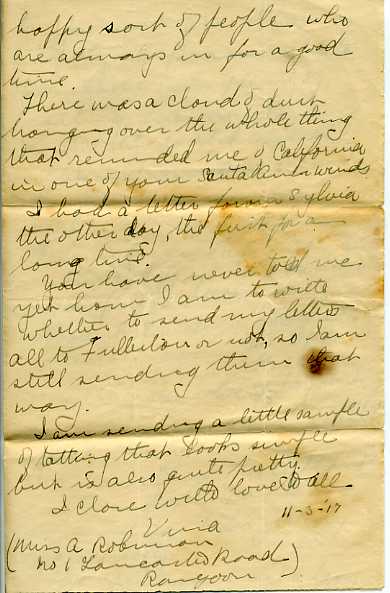 happy sort of people who
are always in for a good
time.
There was a cloud of dust
hanging over the whole thing
that reminded me of California
in one of your Santa Ana winds
I had a letter from Sylvia
the other day, the first for a
long time.
You have never told me
yet how I am to write
whether to send my letters
all to Fullerton or not, so I am
still sending them that
way.
I am sending a little sample
of tatting that looks simple
but is also quite pretty.
I close with love to all
11-3-17
(Miss A Robinson
No 1 Lancaster Road)
Rangoon